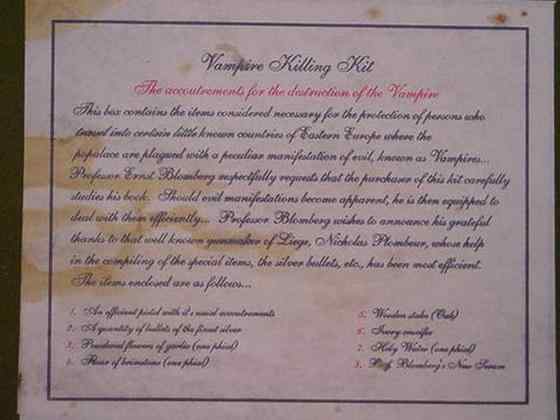 Vampire Killing Kit
The accoutrements for the destruction of the Vampire
This box contains the items considered necessary for the protection of persons who
travel into certain little known countries of Eastern Europe where the
populace are plagued with a peculiar manifestation of evil, known as Vampires...
Professor Ernst Blomberg respectfully requests that the purchaser of this kit carefully
studies his book. Should evil manifestations become apparent, he is then equipped to
deal with them efficiently... Professor Blomberg wishes to announce his grateful
thanks to that well known gunmaker of Liege, Nicholas Plombeur, whose help
in the compiling of the special items, the silver bullets, etc., has been most efficient.
The items enclosed are as follows...
1. An efficient pistol with its usual accoutrements
2. A quantity of bullets of the finest silver
3. Powdered flowers of garlic (one phial)
4. Flour of brimstone (one phial)
5. Wooden stake (Oak)
6. Ivory crucifix
7. Holy Water (one phial)
8. Prof. Blomberg's New Serum